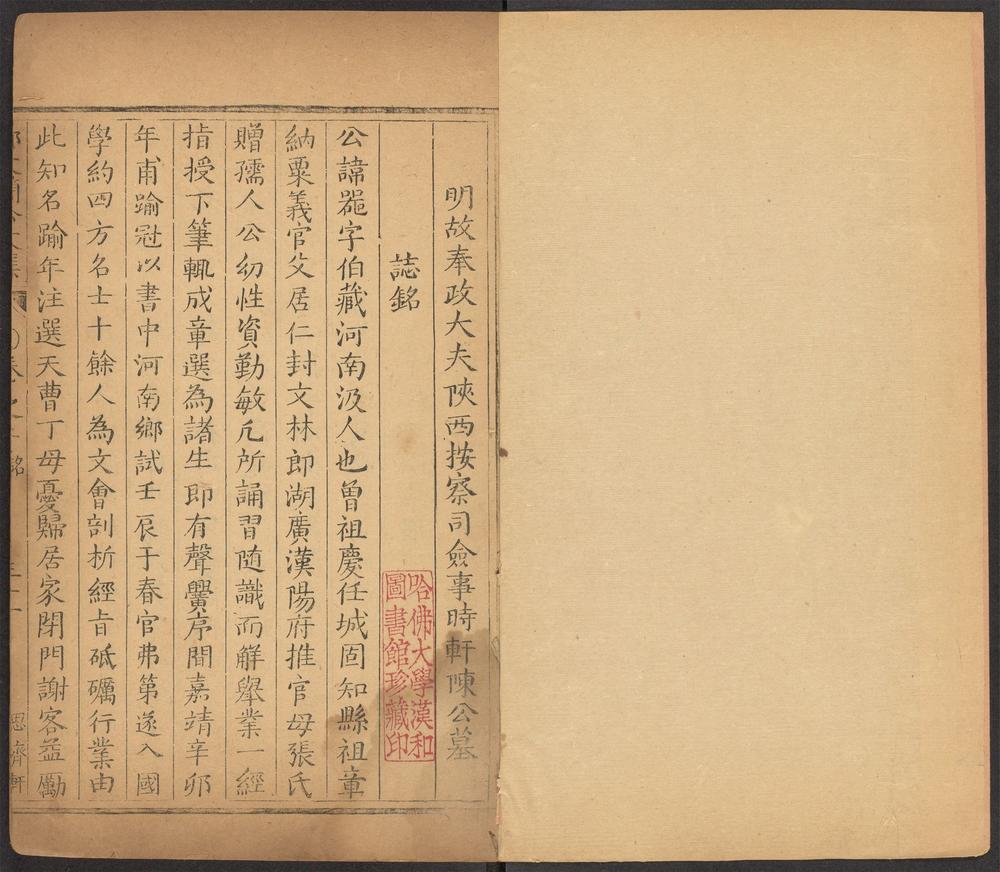 明故奉政大夫陝西按察司僉事時軒陳公墓
誌銘
公諱噐字伯藏河南汲人也曾祖慶任城固知縣祖章
納粟義官父居仁封文林郎湖廣漢陽府推官母張氏
贈孺人公幼性資勤敏凢所誦習隨識而解舉業一經
指授下筆輒成章選為諸生即有聲黌序間嘉靖辛卯
年甫踰冠以書中河南鄉試壬辰于春官弗第遂入國
學約四方名士十餘人為文會剖析經旨砥礪行業由
此知名踰年注選天曹丁母憂歸居家閉門謝客益勵
思濟軒
哈佛大學漢和
圖書館珍藏印